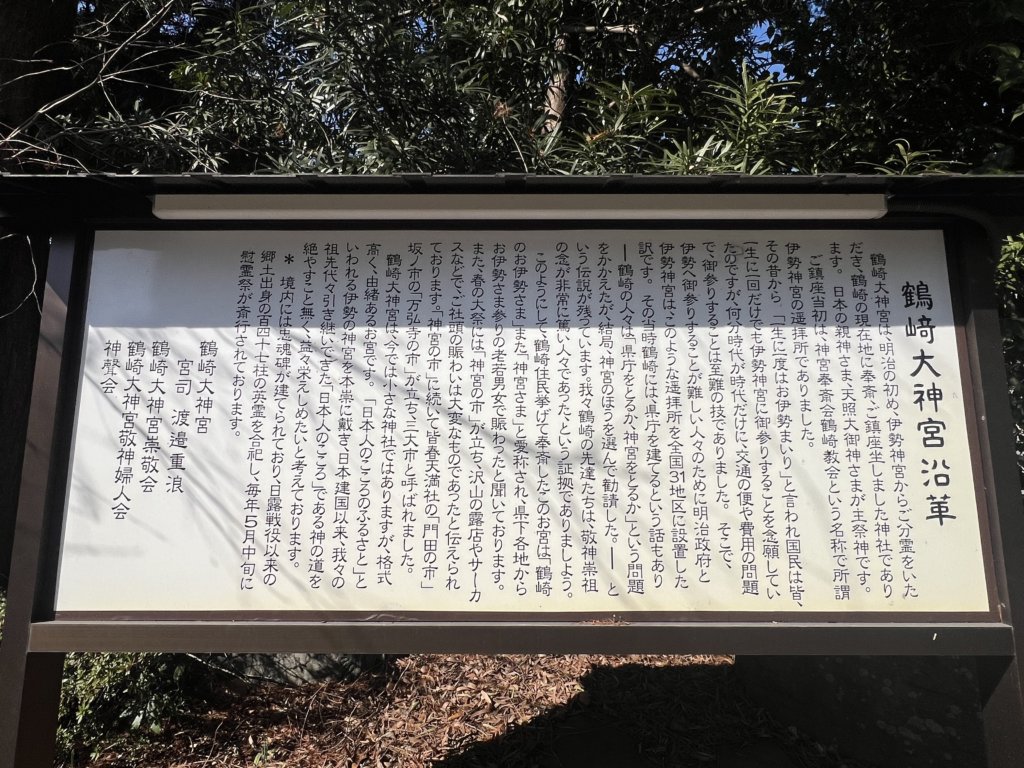 鶴﨑大神宮沿革
鶴﨑大神宮は、明治の初め、伊勢神宮からご分霊をいた
だき、鶴﨑の現在地に奉斎・ご鎮座坐しました神社であり
ます。　日本の親神さま、天照大御神さまが主祭神です。
ご鎮座当初は、神宮奉斎会鶴﨑教会という名称で所謂
伊勢神宮の遥拝所でありました。
その昔から「一生に一度はお伊勢まいり」と言われ国民は皆、
一生に一回だけでも伊勢神宮に御参りすることを念願してい
たのですが、何分時代が時代だけに、交通の便や費用の問題
で、御参りすることは至難の技でありました。　そこで、
伊勢へ御参りすることが難しい人々のために明治政府と
伊勢神宮は、このような遥拝所を全国31地区に設置した
訳です。　その当時鶴﨑には、県庁を建てるという話もあり
――鶴﨑の人々は「県庁をとるか、神宮をとるか」という問題
をかかえたが、結局、神宮のほうを選んで勧請した。――と
いう伝説が残っています。我々鶴﨑の先達たちは、敬神崇祖
の念が非常に篤い人々であった、という証拠でありましよう。
このようにして、鶴﨑住民挙げて奉斎したこのお宮は「鶴﨑
のお伊勢さま」また「神宮さま」と愛称され、県下各地から
お伊勢さま参りの老若男女で賑わったと聞いております。
また、春の大祭には「神宮の市」が立ち、沢山の露店やサーカ
スなどで、ご社頭の賑わいは大変なものであったと伝えられ
ております。「神宮の市」に続いて皆春天満社の「門田の市」
坂ノ市の「万弘寺の市」が立ち、三大市と呼ばれました。
鶴﨑大神宮は、今では小さな神社ではありますが、格式
高く、由緒あるお宮です。「日本人のこころのふるさと」と
いわれる伊勢の神宮を本崇に戴き、日本建国以来、我々の
祖先代々引き継いできた「日本人のこころ」である神の道を
絶やすこと無く、益々栄えしめたいと考えております。
＊　境内には忠魂碑が建てられており、日露戦役以来の
郷土出身の百四十七柱の英霊を合祀し、毎年５月中旬に
慰霊祭が斎行されております。
鶴﨑大神宮
宮司　渡邉重浪
鶴﨑大神宮崇敬会
鶴﨑大神宮敬神婦人会
神聲会